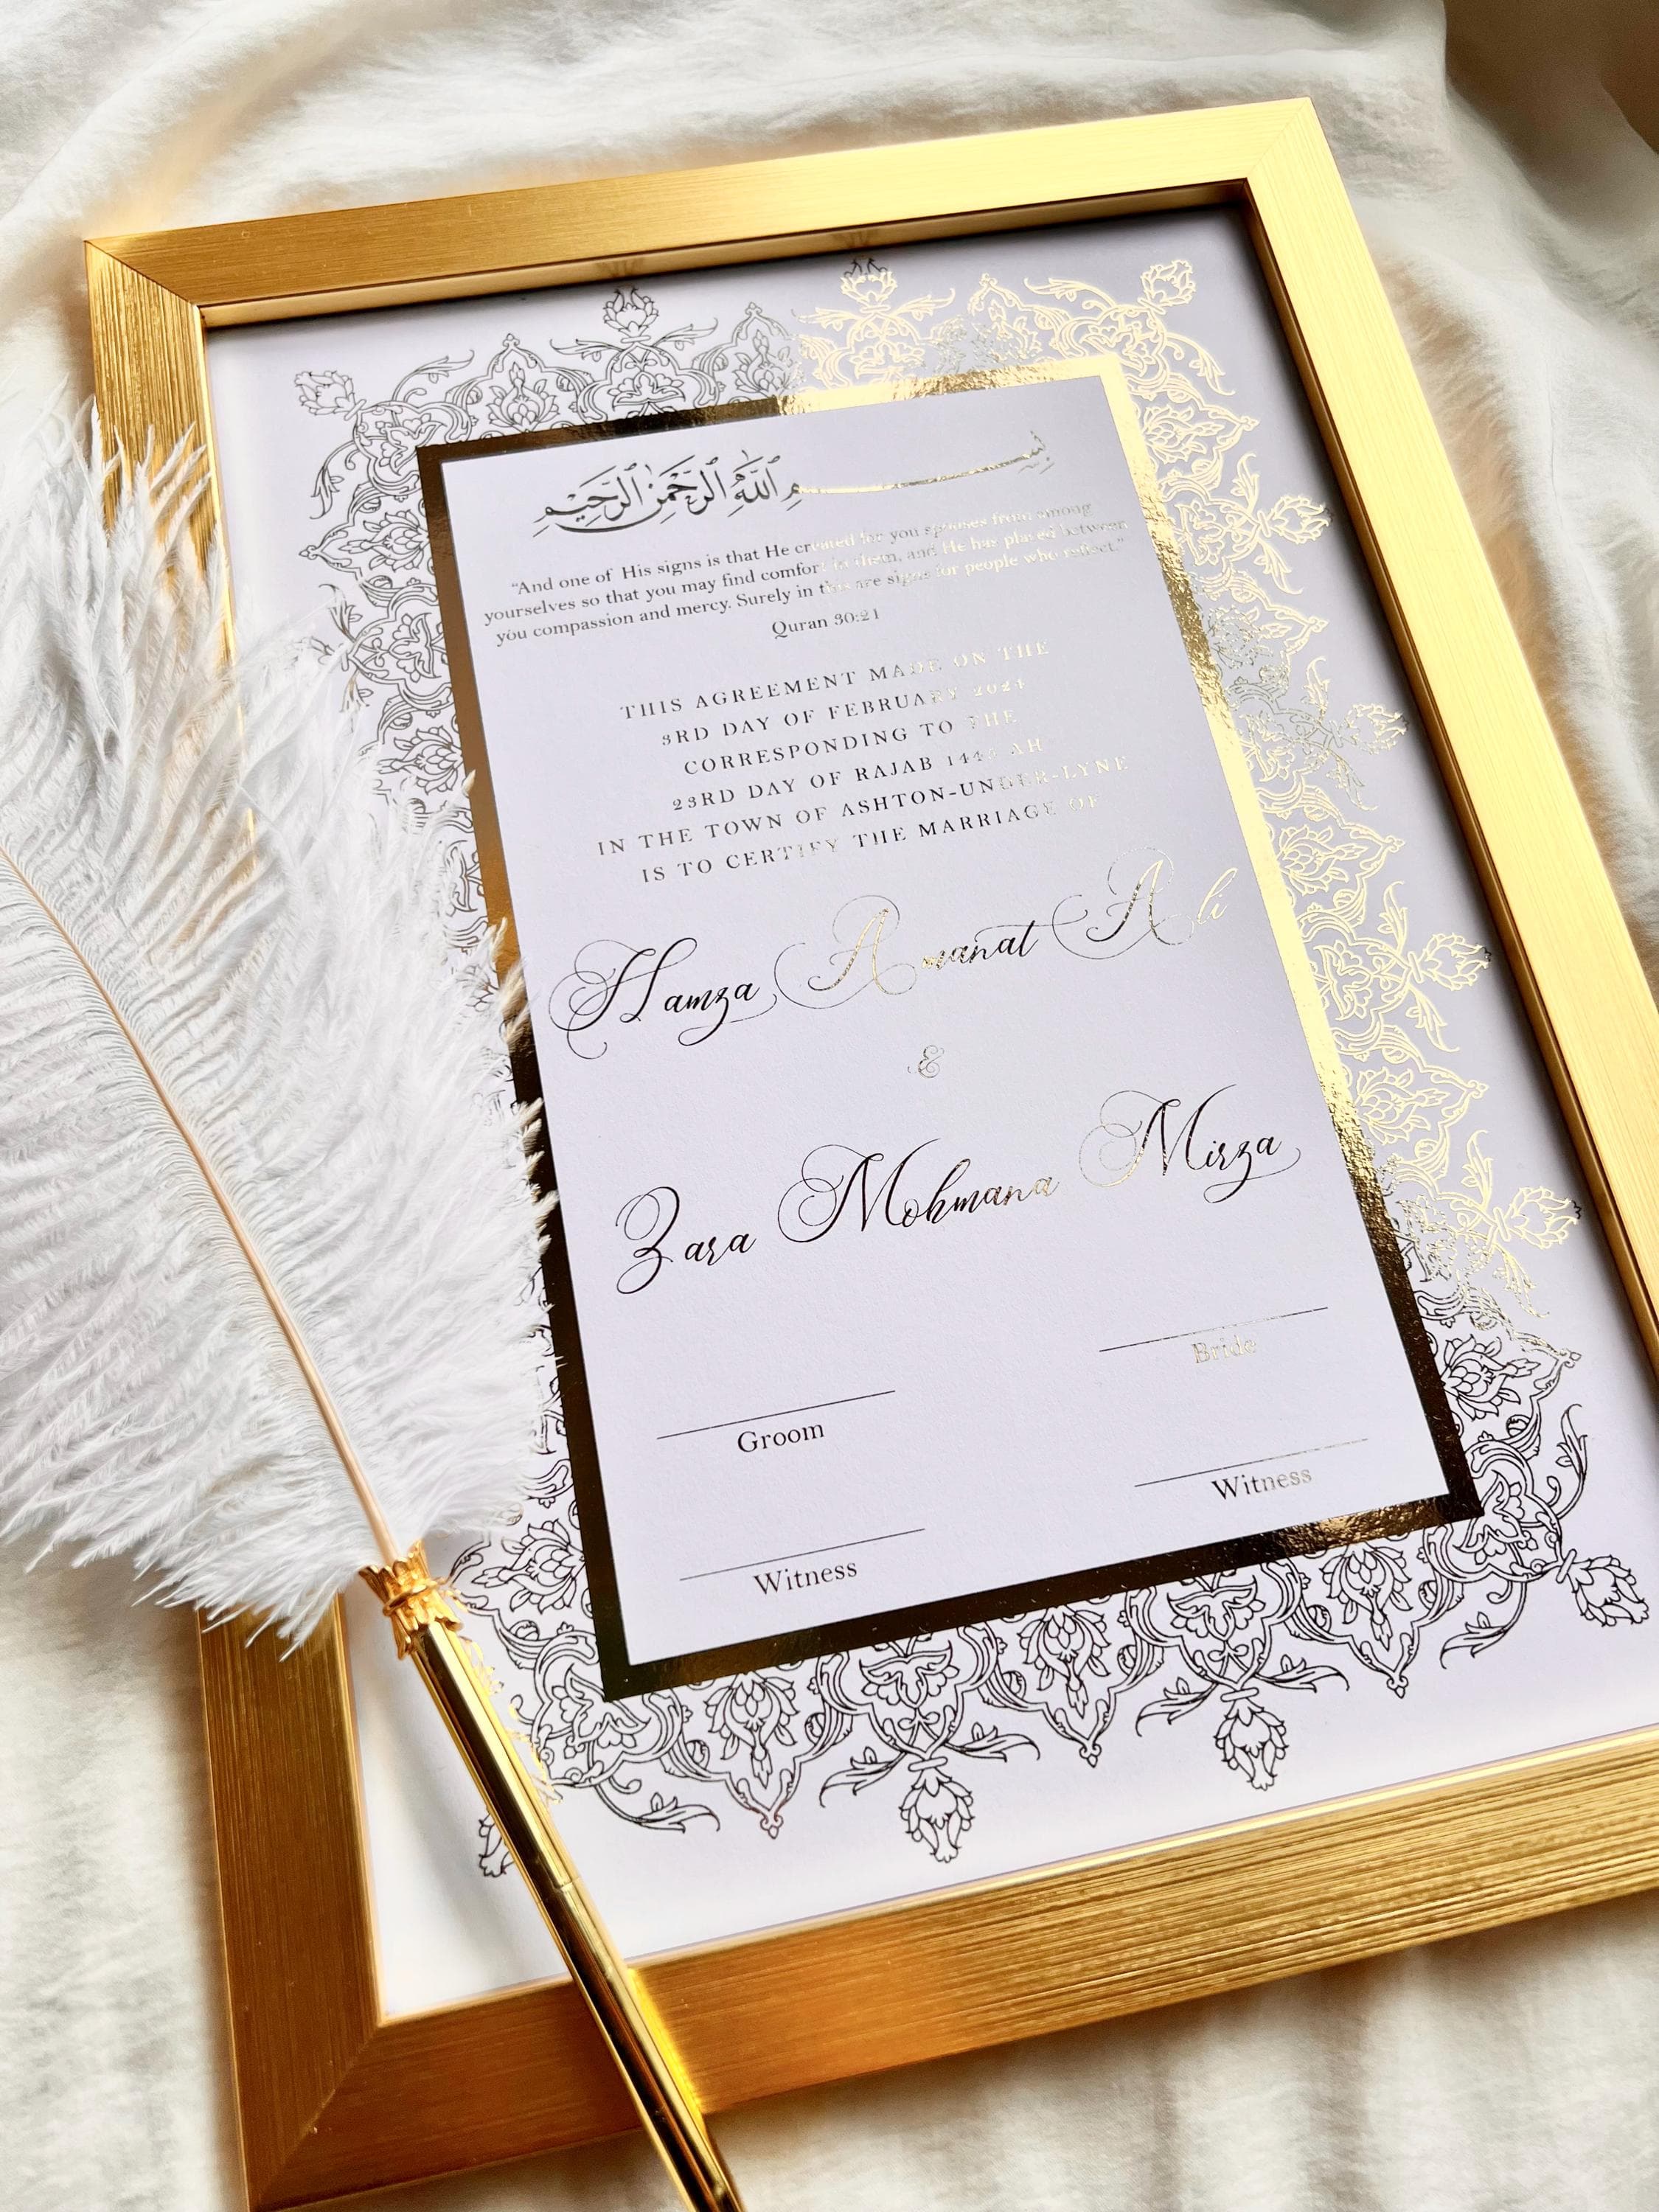 بسم الله الرحمن الرحيم
"And one of His signs is that He created for you spouses from among
yourselves so that you may find comfort in them, and He has placed between
you compassion and mercy. Surely in this are signs for people who reflect."
Quran 30:21
THIS AGREEMENT MADE ON THE
3RD DAY OF FEBRUARY 2024
CORRESPONDING TO THE
23RD DAY OF RAJAB 1445 AH
IN THE TOWN OF ASHTON-UNDER-LYNE
IS TO CERTIFY THE MARRIAGE OF
Hamza Amanat Ali
&
Zara Mohmana Mirza
Groom Bride
Witness Witness